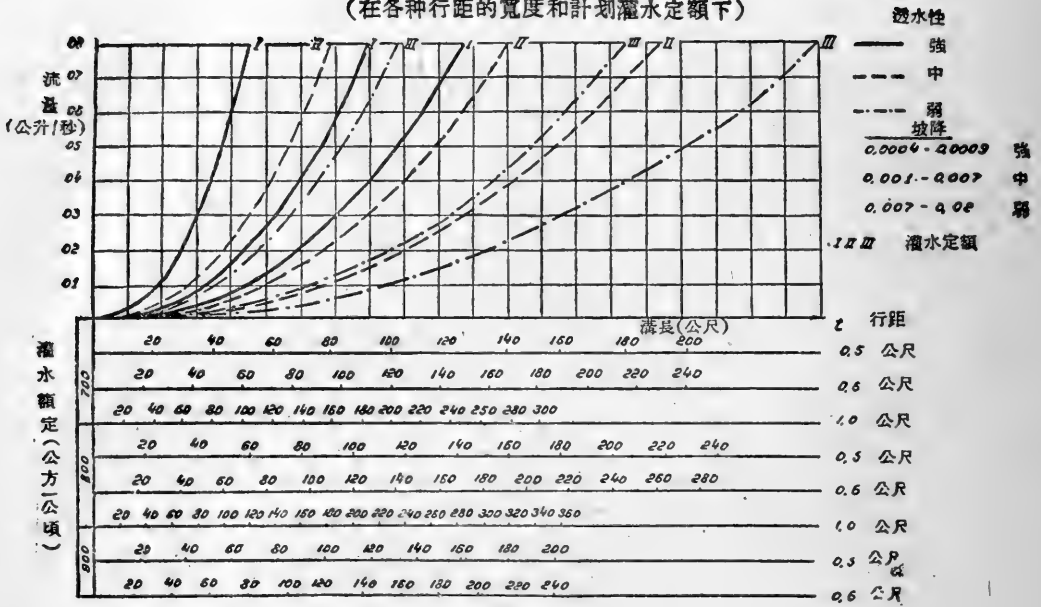 (在各种行距的寬度和計划灌水定額下)
I II I III I II III II III
透水性
強
中
弱
坡降
0.0004-0.0009 強
0.001-0.007 中
0.007-0.02 弱
I II III 灌水定額
流量
(公升/秒)
0.8
0.7
0.6
0.5
0.4
0.3
0.2
0.1
溝長(公尺)
灌水額定(公方一公頃)
t 行距
700
20 40 60 80 100 120 140 160 180 200
0.5 公尺
20 40 60 80 100 120 140 160 180 200 220 240
0.6 公尺
20 40 60 80 100 120 140 160 180 200 220 240 250 280 300
1.0 公尺
800
20 40 60 80 100 120 140 160 180 200 220 240
0.5 公尺
20 40 60 80 100 120 140 160 180 200 220 240 260 280
0.6 公尺
20 40 60 80 100 120 140 160 180 200 220 240 260 280 300 320 340 360
1.0 公尺
20 40 60 80 100 120 140 160 180 200
0.5 公尺
20 40 60 80 100 120 140 160 180 200 220 240
0.6 公尺